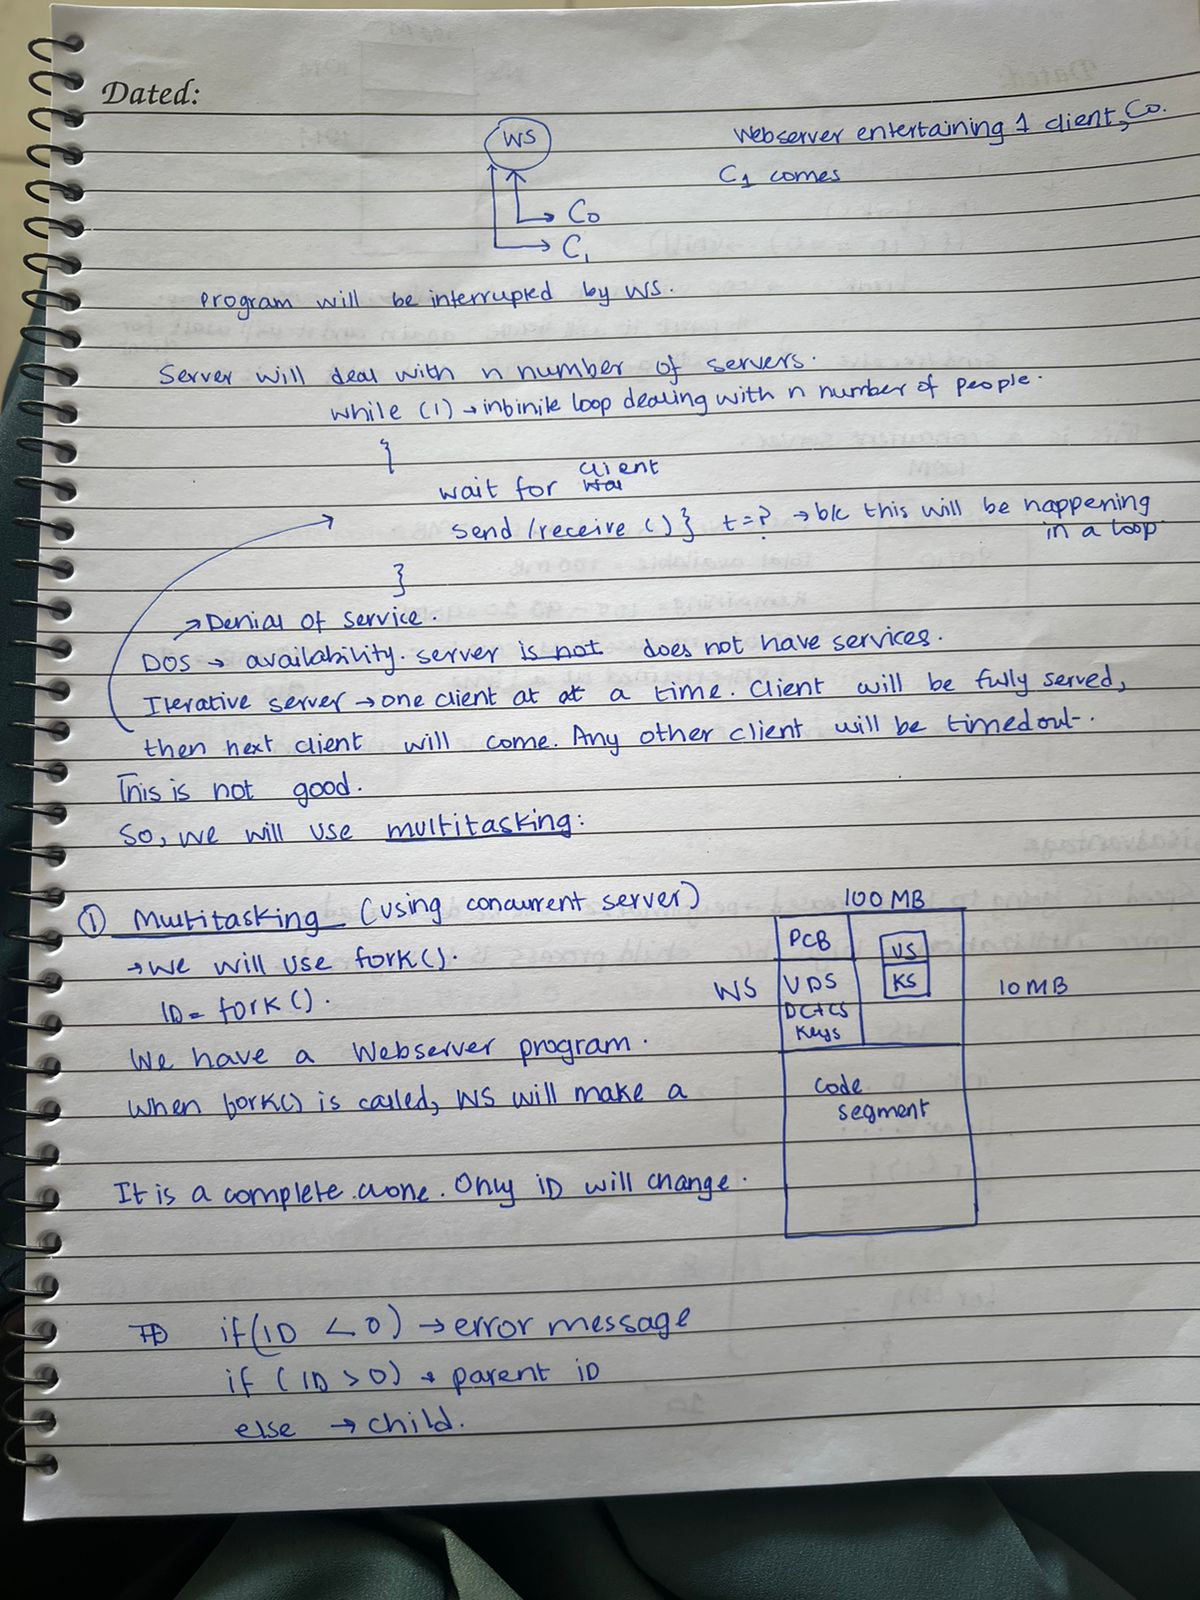 Dated:
WS
Webserver entertaining 1 client, C0.
C1 comes
C0
C1
Program will be interrupted by WS.
Server will deal with n number of servers.
while (1) → infinite loop dealing with n number of people.
{
client
wait for
send /receive () } t=? → b/c this will be happening
in a loop
}
→ Denial of service.
DOS → availability. server is not does not have services.
Iterative server → one client at at a time. Client will be fully served,
then next client will come. Any other client will be timedout.
This is not good.
So, we will use multitasking:
① Multitasking (using concurrent server)
→ we will use fork().
ID = fork().
We have a Webserver program.
When fork() is called, WS will make a
It is a complete clone. Only ID will change.
100 MB
PCB
US
WS
UDS
KS
10 MB
DC+CS
Keys
Code
segment
if (ID < 0) → error message
if (ID > 0) → parent ID
else → child.